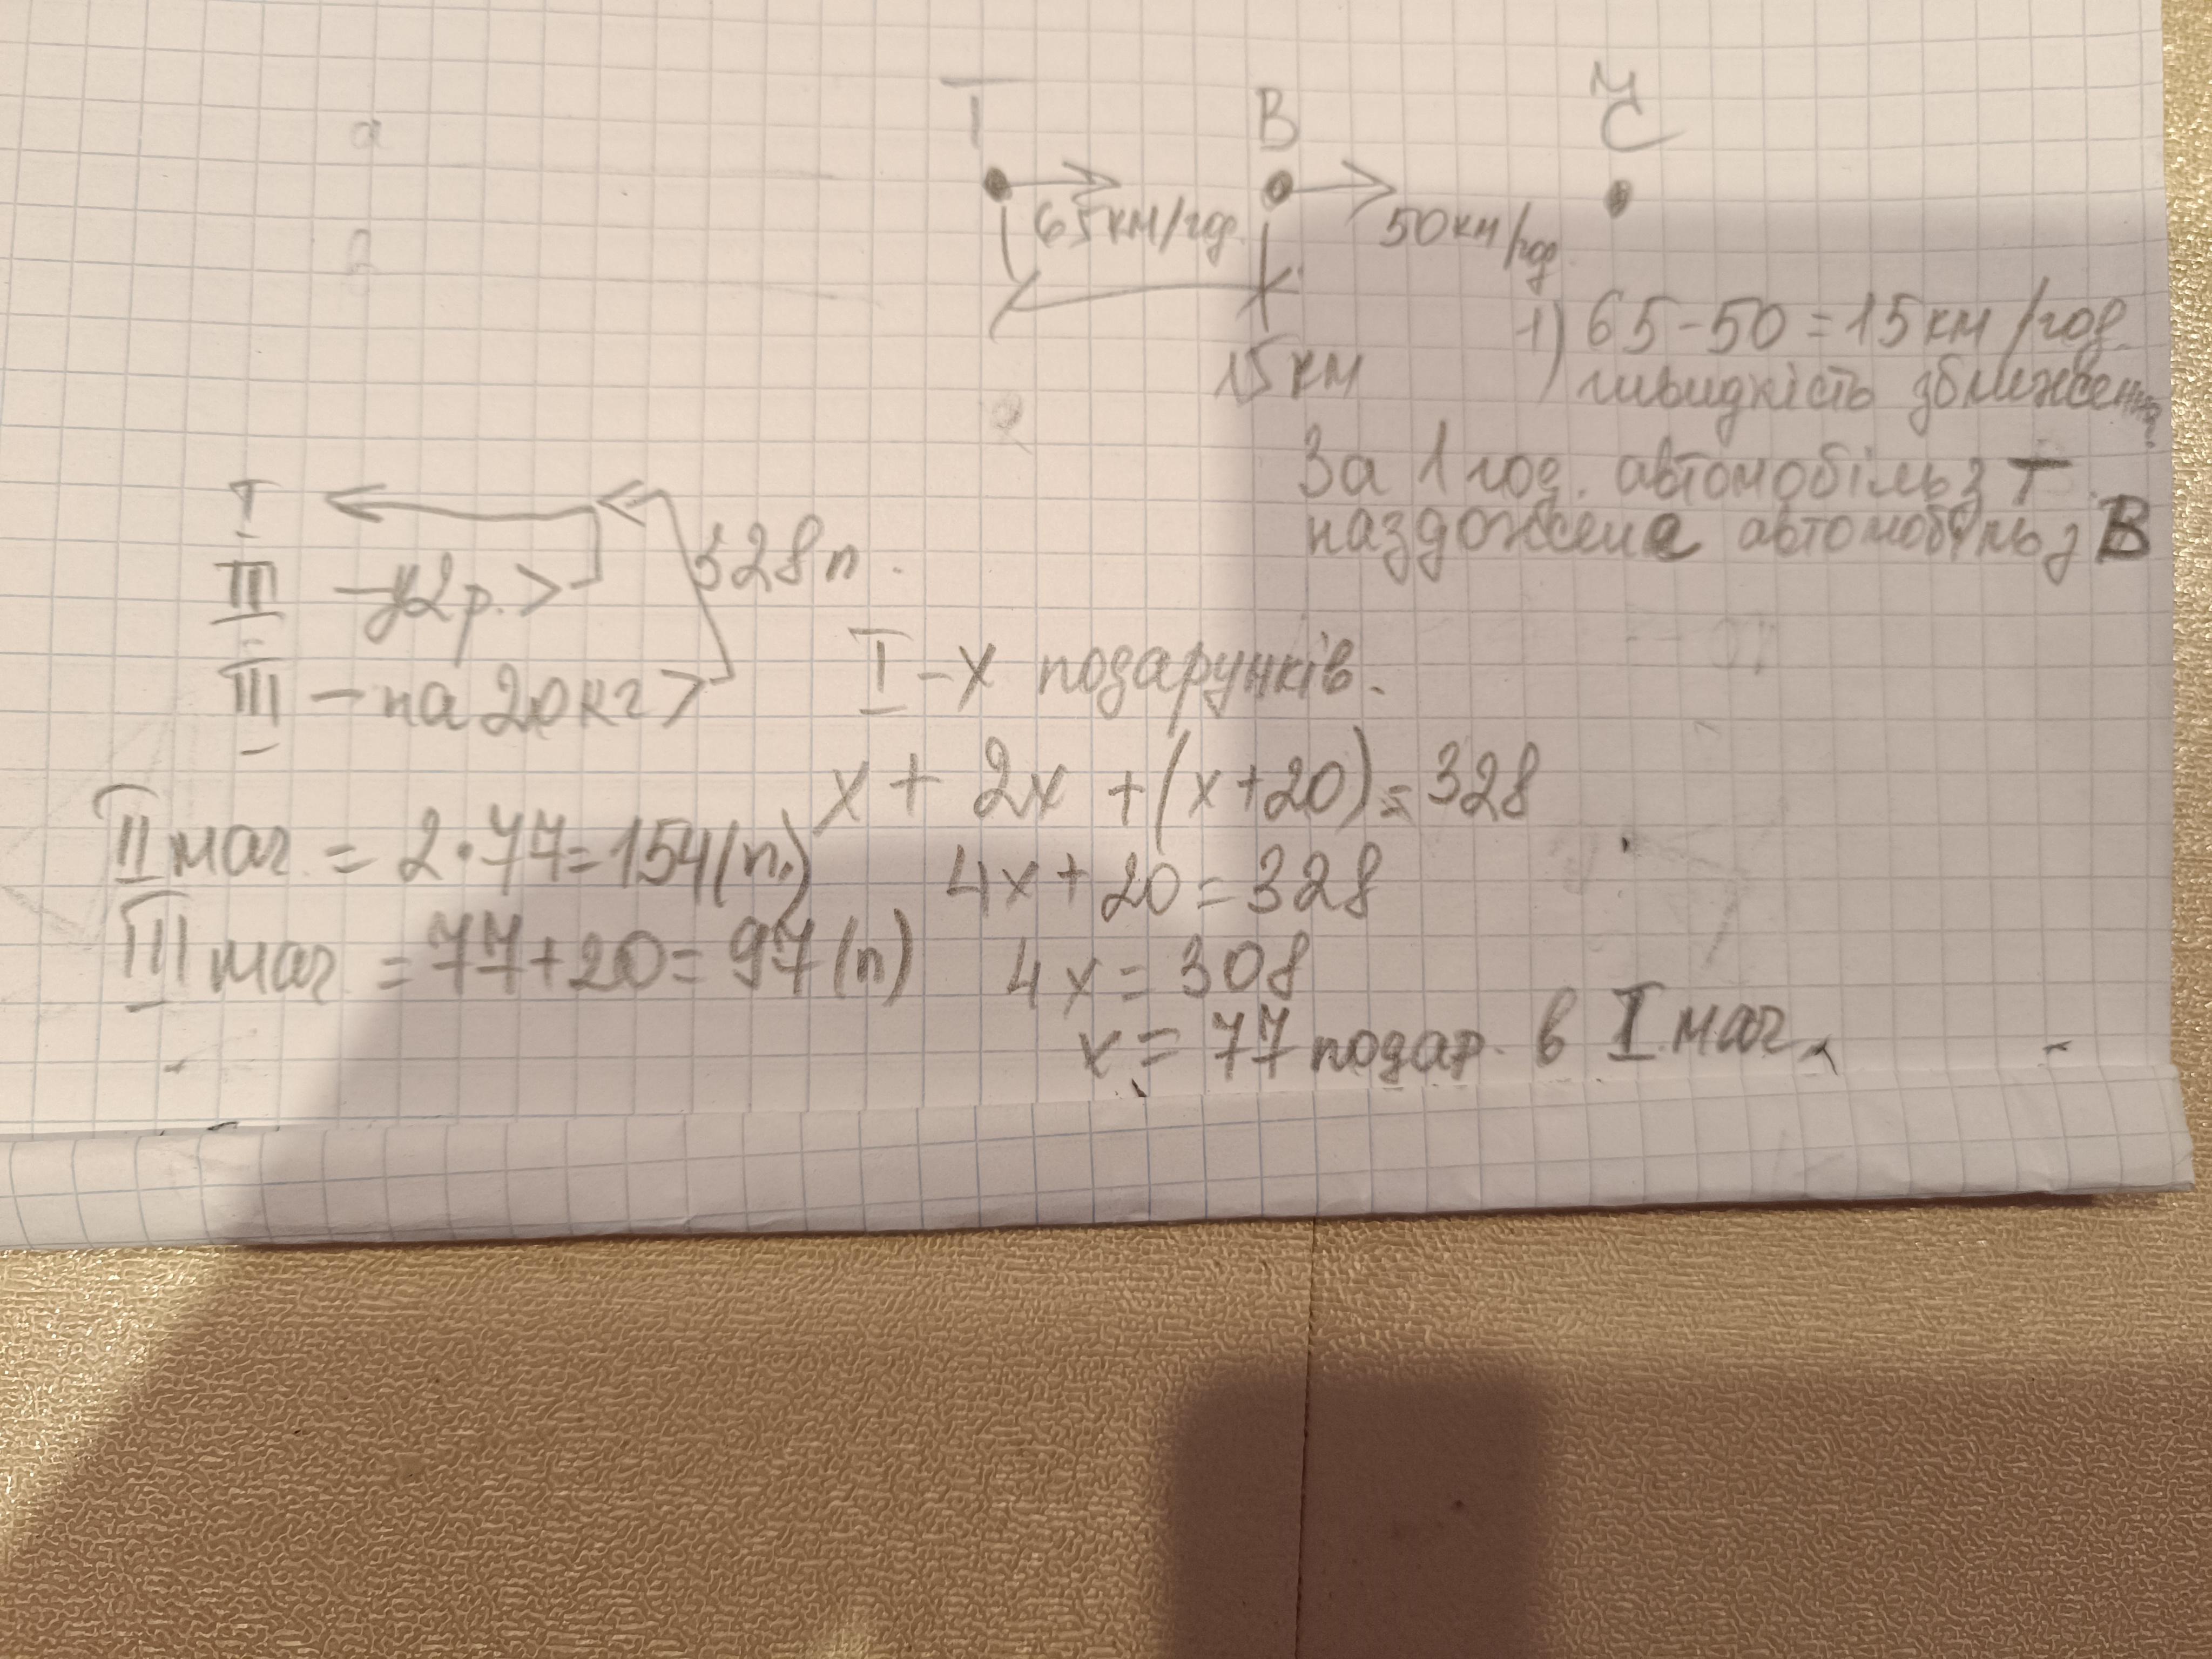 Т В Ч
65км/год. 50км/год.
15 км
1) 65-50=15км/год.
швидкість зближення
За 1 год. автомобіль з Т.
наздожене автомобіль з В
I
II - у2р. > 328п.
III - на 20кг >
I - х подарунків.
х + 2х + (х+20) = 328
4х + 20 = 328
4х = 308
х = 77 подар. в I маг.
II маг. = 2·77=154(п.)
III маг. = 77+20= 97(п)